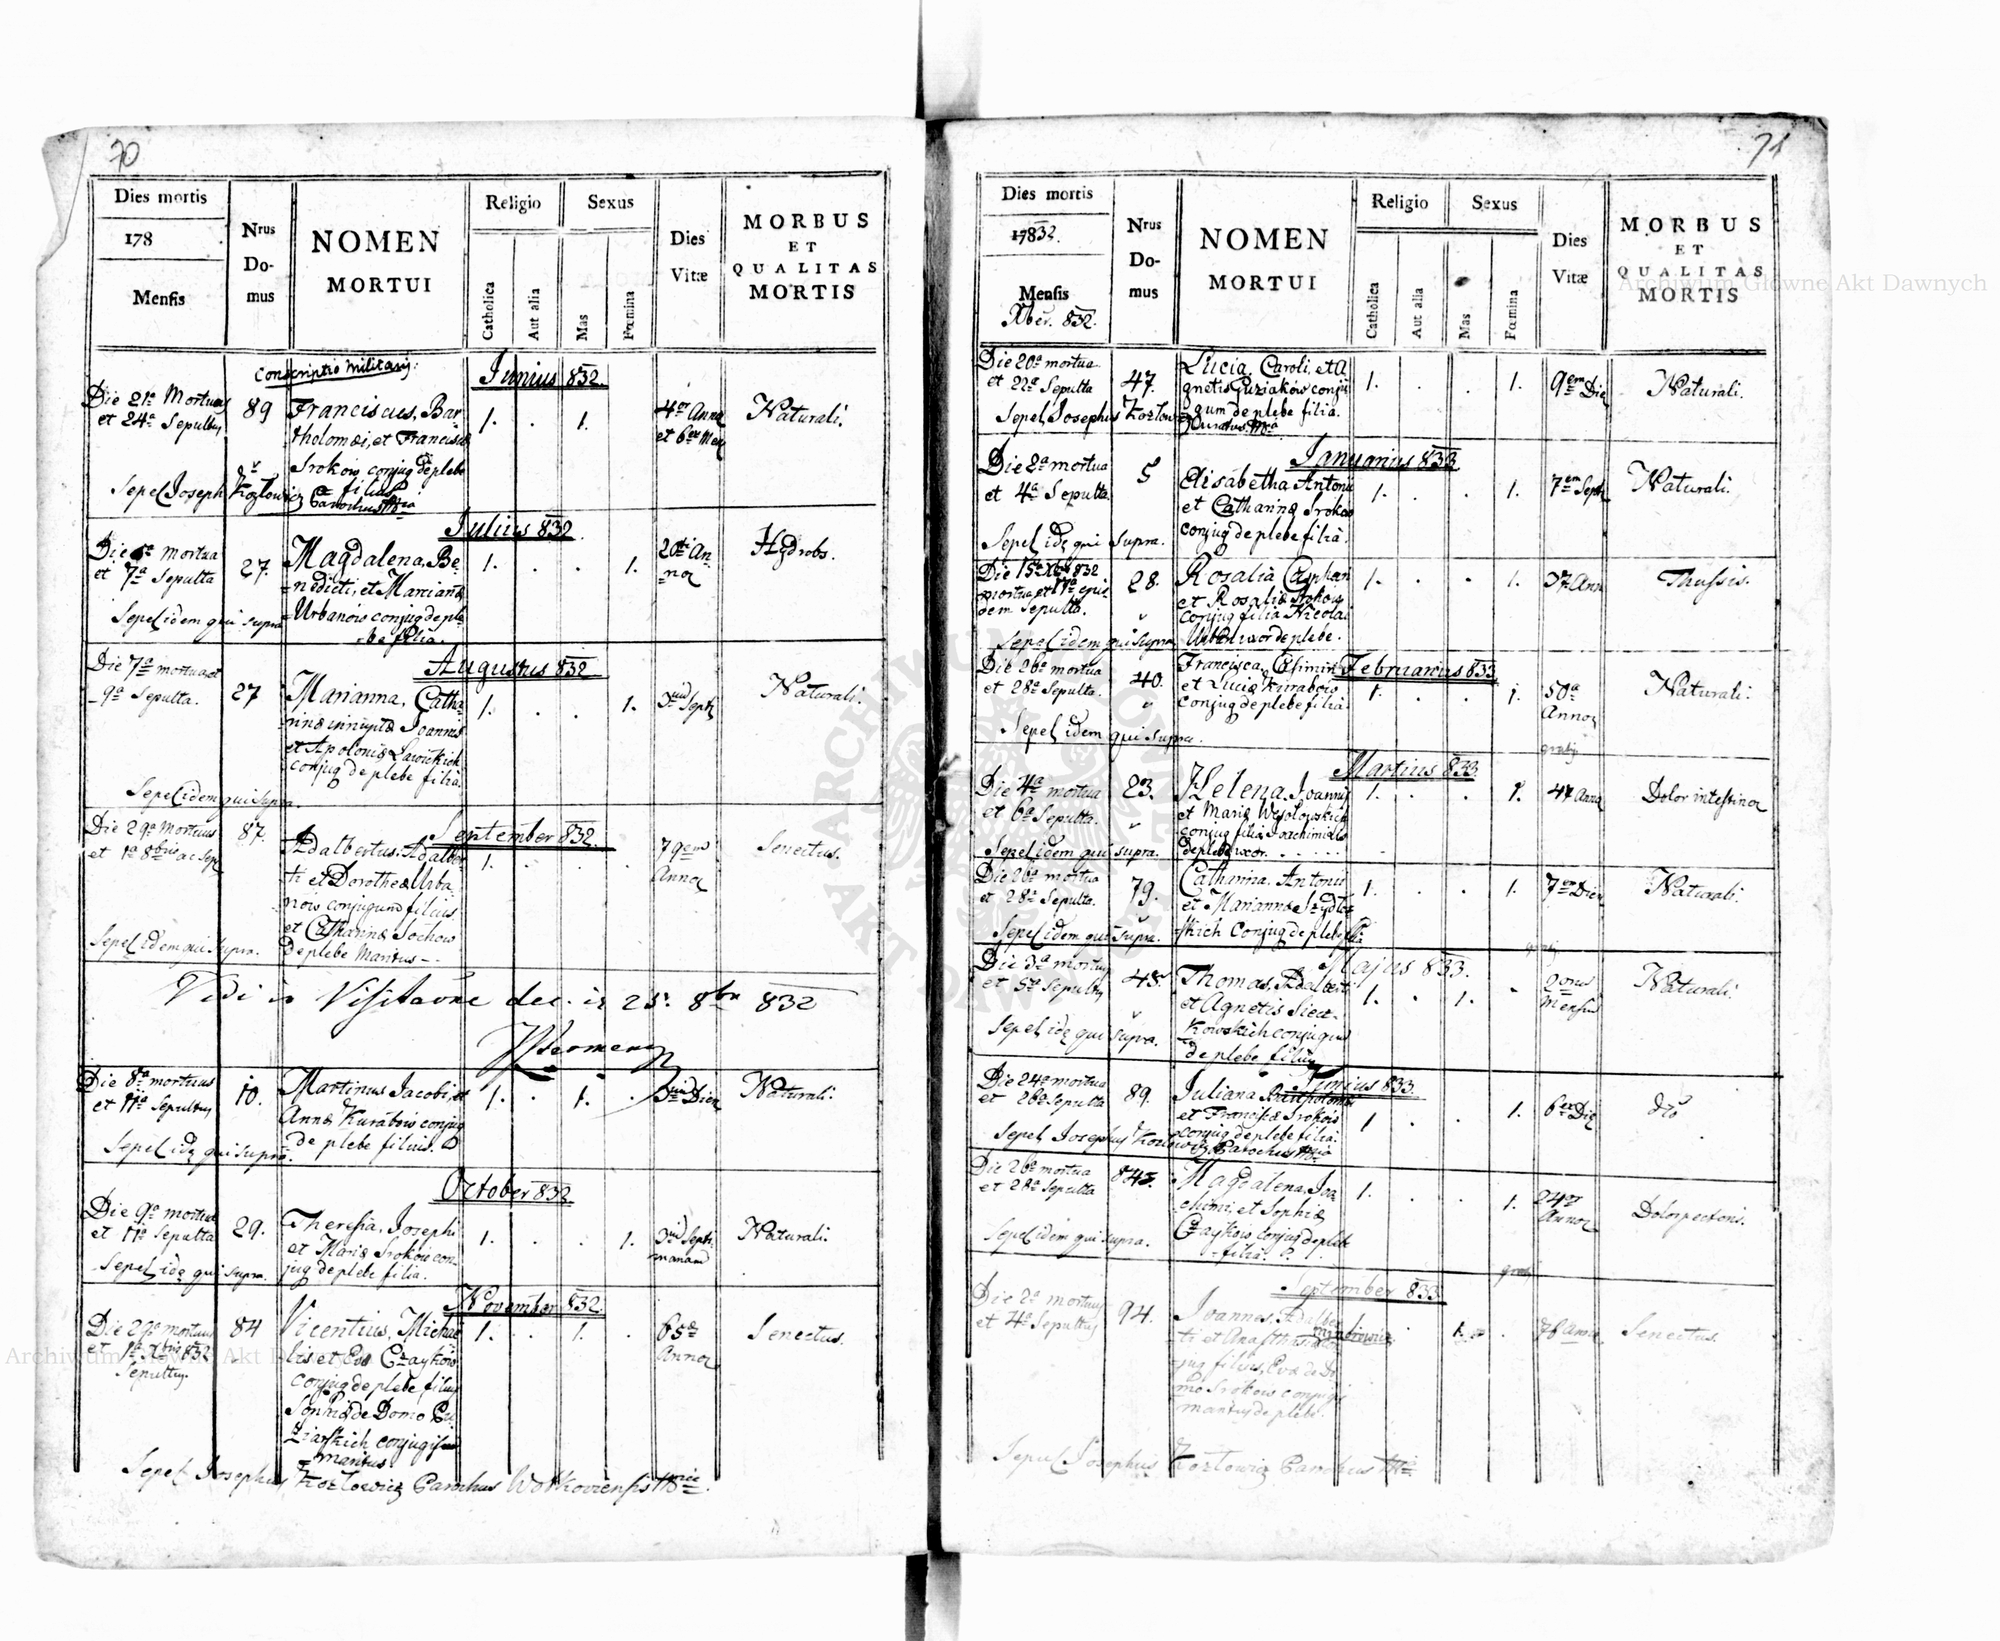 70
Dies mortis
178
Mensis
Nrus
Do-
mus
NOMEN
MORTUI
Religio
Catholica
Aut alia
Sexus
Mas
Fœmina
Dies
Vitæ
MORBUS
ET
QUALITAS
MORTIS
Conscriptio militaris:
Junius 832.
Die 21a Mortuus
et 24a Sepultus
89
Franciscus, Bar-
tholomæi, et Franciscæ
Srokow conjug de plebe
filius
1. . 1.
4or Anno
et 6ex Men
Naturali.
Sepel Joseph Kozłowicz Parochus
Julius 832
mortua
et 7a Sepulta
27.
Magdalena, Be-
=nedicti, et Mariannæ
Urbanow conjug de ple-
be filia.
1. . . 1.
20ti An-
na
Hydrobs.
Sepel idem qui supra
Augustus 832
Die 7a mortua et
9a Sepulta.
27
Marianna, Catha-
rinæ innuptæ Joannis
et Apoloniæ
conjug de plebe filia
1. . . 1.
3um Sept
Naturali.
Sepel idem qui supra.
September 832.
Die 29a Mortuus
et 1a 8bris
87.
Adalbertus, Adalber-
ti et Dorotheæ Urba
now conjugum filius
et Catharinæ Sochow
de plebe Maritus -.
1. . . .
79em
Anno
Senectus.
Sepel idem qui supra.
Vidi in Visitatione dec. in 25. 8br 832
Die 8a mortuus
et 11a Sepultus
10.
Martinus Jacobi, et
Annæ Kurabow conjug
de plebe filius.
1. . 1. .
Dier
Naturali.
Sepel idę qui supra.
October 832
Die 9a mortua
et 11a Sepulta
29.
Theresia, Josephi
et Mariæ Srokow con-
jug de plebe filia.
1. . . 1.
3um Septi
manam
Naturali.
Sepel idę qui supra.
November 832.
Die 29a mortuus
et 1a Xbris 832
Sepultus.
84
Vicentius, Micha-
lis et Evæ Czaykow
conjug de plebe filius
Sophiæ de Domo Gu
ziarskich conjugis
maritus
1. . 1. .
65a
Anno
Senectus.
Sepel Josephus Kozłowicz Parochus
71
Dies mortis
17832.
Mensis
Xber. 832.
Nrus
Do-
mus
NOMEN
MORTUI
Religio
Catholica
Aut alia
Sexus
Mas
Fœmina
Dies
Vitæ
MORBUS
ET
QUALITAS
MORTIS
Die 20a mortua
et 22a Sepulta
47.
Lucia, Caroli, et A
gnetis Guziakow conju
gum de plebe filia.
1. . . 1.
9em Die
Naturali.
Sepel Josephus Kozłowicz
Januarius 833
Die 2a mortua
et 4a Sepulta
5
Elisabetha Antonii
et Catharinæ Srokow
conjug de plebe filia.
1. . . 1.
7em Sept
Naturali.
Sepel idę qui supra.
Die 15a Xbr 832
mortua et 17a epus-
dem Sepulta.
28.
Rosalia
et Rosaliæ Srokow
conjug filia Nicolai
Urban uxor de plebe.
1. . . 1.
37 Ann
Thussis.
Sepel idem qui supra
Februarius 833
Die 26a mortua
et 28a Sepulta.
40.
Francisca, Casimiri
et Luciæ Kurabow
conjug de plebe filia
1. . . 1.
50a
Annor
Naturali.
Sepel idem qui supra.
gratis
Martius 833.
Die 4a mortua
et 6a Sepulta.
23.
Helena, Joannis
et Mariæ Wesołowskich
conjug filia Joachimi
de plebe uxor. . . . . .
1. . . 1.
47 Anno
Dolor intestinor
Sepel idem qui supra.
Die 26a mortua
et 28a Sepulta.
79.
Catharina, Antonii
et Mariannæ Szydłoz
skich Conjug de plebe
1. . . 1.
7em Dier
Naturali.
Sepel idem qui supra.
Majus 833.
Die 3a mortuus
et 5a Sepultus
45.
Thomas, Adalberti
et Agnetis Siecz-
kowskich conjugum
de plebe filius
1. . 1. .
Mensium
Naturali.
Sepel idę qui supra.
Junius 833.
Die 24a mortua
et 26a Sepulta
89.
Juliana Bartholomæi
et Franciscæ Srokow
conjug de plebe filia.
1. . . 1.
6ex Die
dto
Sepel Josephus Kozłowicz Parochus
Die 26a mortua
et 28a Sepulta
Magdalena, Joa
chimi, et Sophiæ
Czaykow conjug de plebe
filia.
1. . . 1.
24or
Annor
Dolor pectoris.
Sepel idem qui supra.
gratis
September 833
Die 2a mortuus
et 4a Sepultus
94.
Joannes, Adalber
ti et Anasthasiæ con
jug filius, Evæ de Do
mo Srokow conjugis
maritus de plebe.
78 Anno
Senectus.
Sepel Josephus Kozłowicz Parochus
Archiwum Główne Akt Dawnych
Archiwum Główne Akt Dawnych
ARCHIWUM GŁÓWNE AKT DAWNYCH